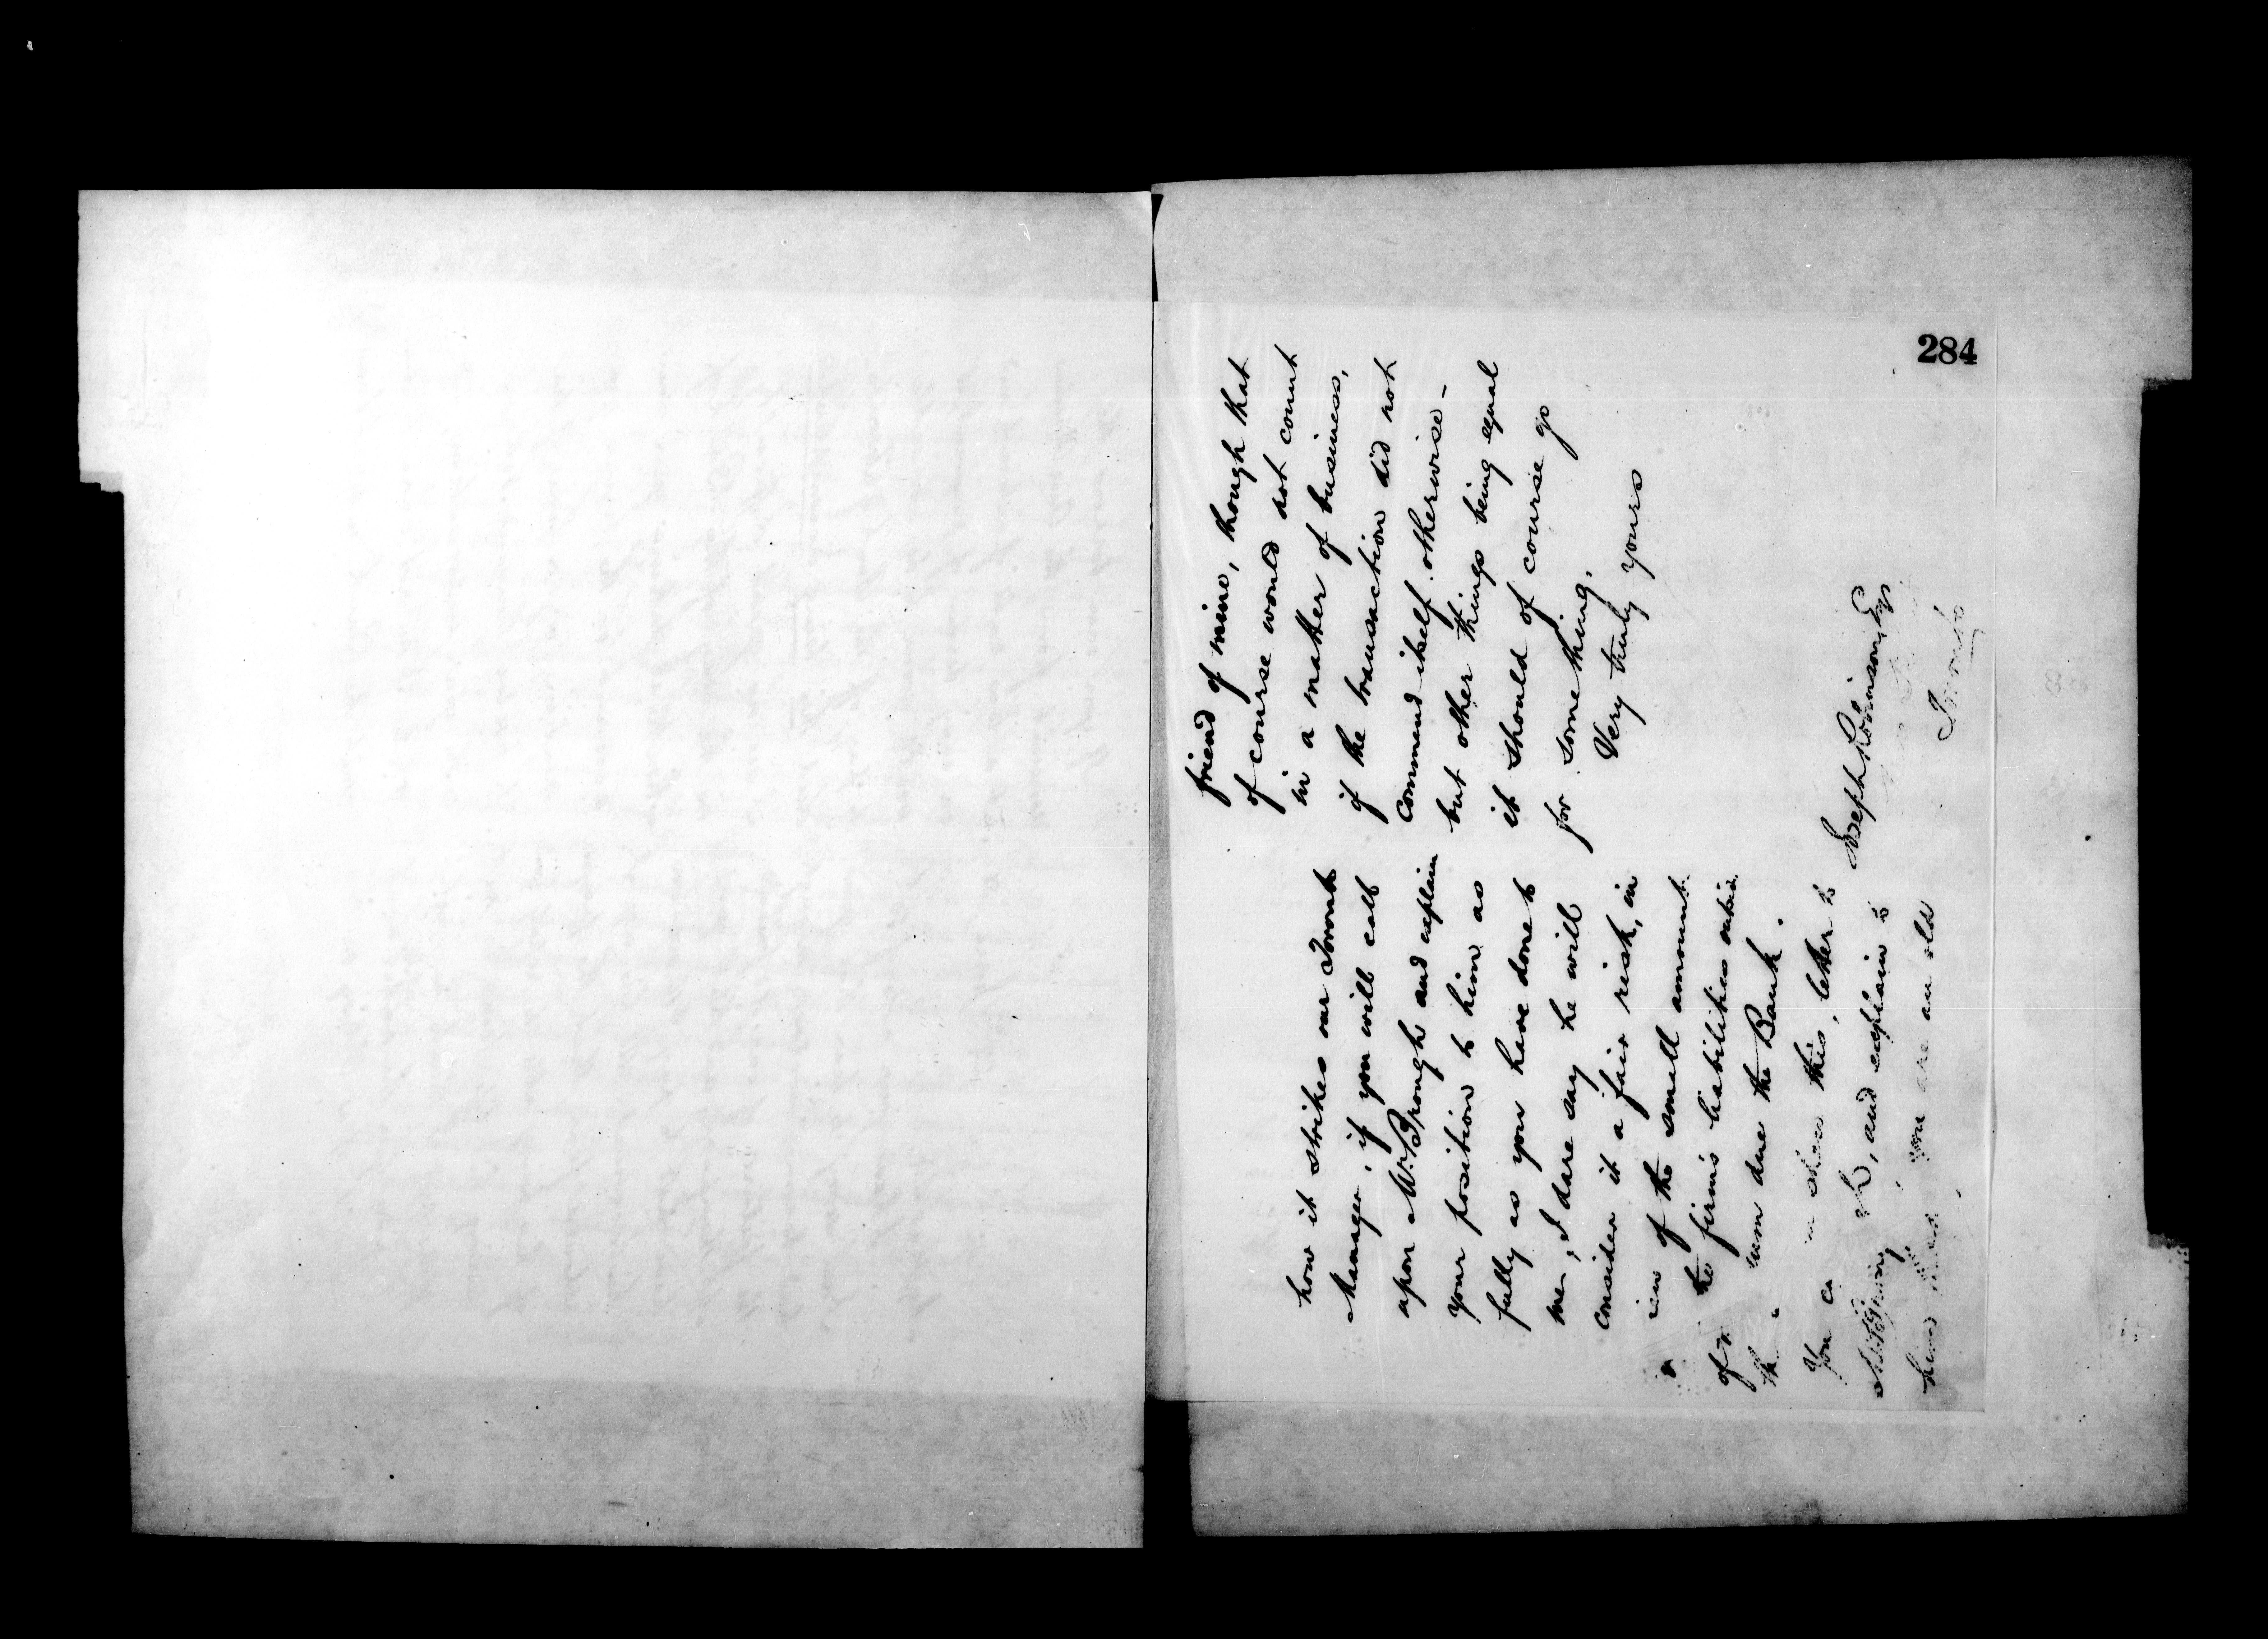 284
how it strikes our Toronto
Manager, if you will call
upon Mr. Brough and explain
your position to him as
fully as you have done to
me, I dare say he will
consider it a fair risk, in
view of the small amount
of the firm's liabilities outside
the sum due the Bank.
You can show this letter to
Mr Brough, and explain to
him that you are an old
friend of mine, though that
of course would not count
in a matter of business,
if the transaction did not
commend itself otherwise -
but other things being equal
it should of course go
for something.
Very truly yours
Joseph Robinson Esq
Toronto